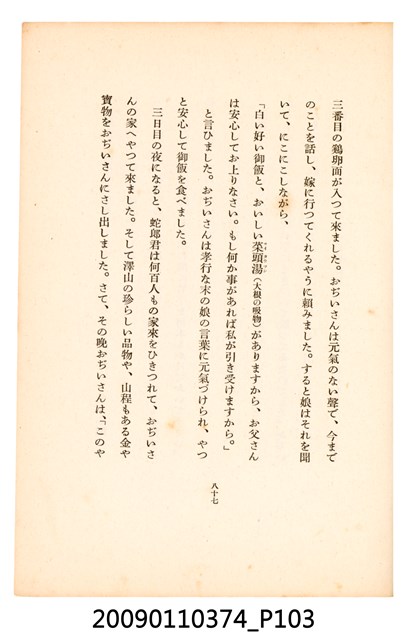 三番目の鷄卵面が入つて來ました。おぢいさんは元氣のない聲で、今まで
のことを話し、嫁に行つてくれるやうに頼みました。すると娘はそれを聞
いて、にこにこしながら、
「白い好い御飯と、おいしい菜頭湯(大根の吸物)がありますから、お父さん
は安心してお上りなさい。もし何か事があれば私が引き受けますから。」
と言ひました。おぢいさんは孝行な末の娘の言葉に元氣づけられ、やつ
と安心して御飯を食べました。
三日目の夜になると、蛇郎君は何百人もの家來をひきつれて、おぢいさ
んの家へやつて來ました。そして澤山の珍らしい品物や、山程もある金や
寶物をおぢいさんにさし出しました。さて、その晩おぢいさんは、「このや
八十七
20090110374_P103